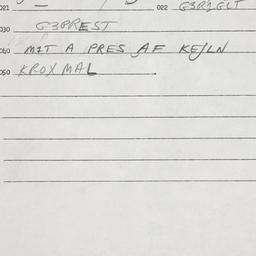 021 022 G3R1GLT
030 G3PREST
060 MIT A PRES AF KEJLN
050 KROXMAL